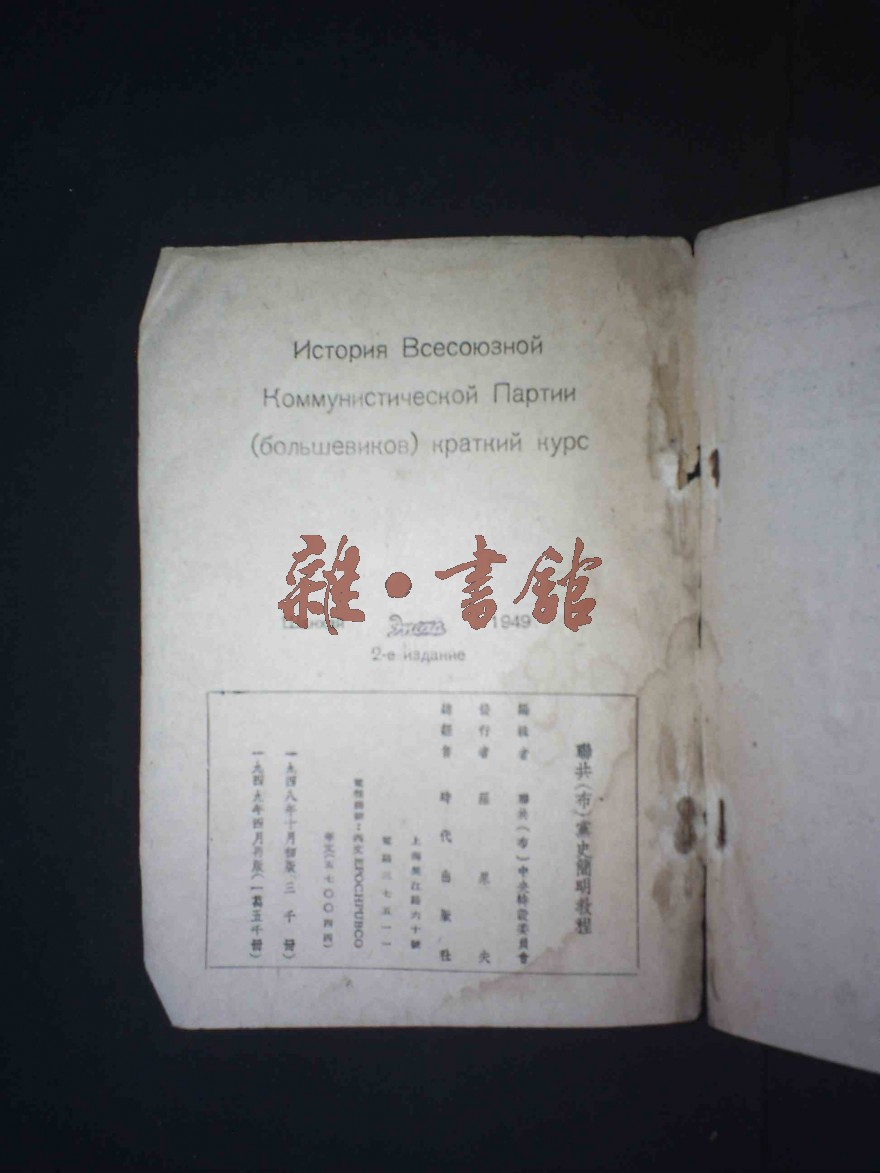 История Всесоюзной
Коммунистической Партии
(большевиков) краткий курс
雜•書館
Эпоха 1949
2-е издание
聯共(布)黨史簡明教程
編輯者 聯共(布)中央特設委員會
發行者 羅果夫
總經售 時代出版社
上海 江路六十號
電話三七五一一
電報掛號:西文EPOCHPUBCO
華文(五七〇〇四四)
一九四八年十月初版(三千冊)
一九四九年四月再版(一萬五千冊)